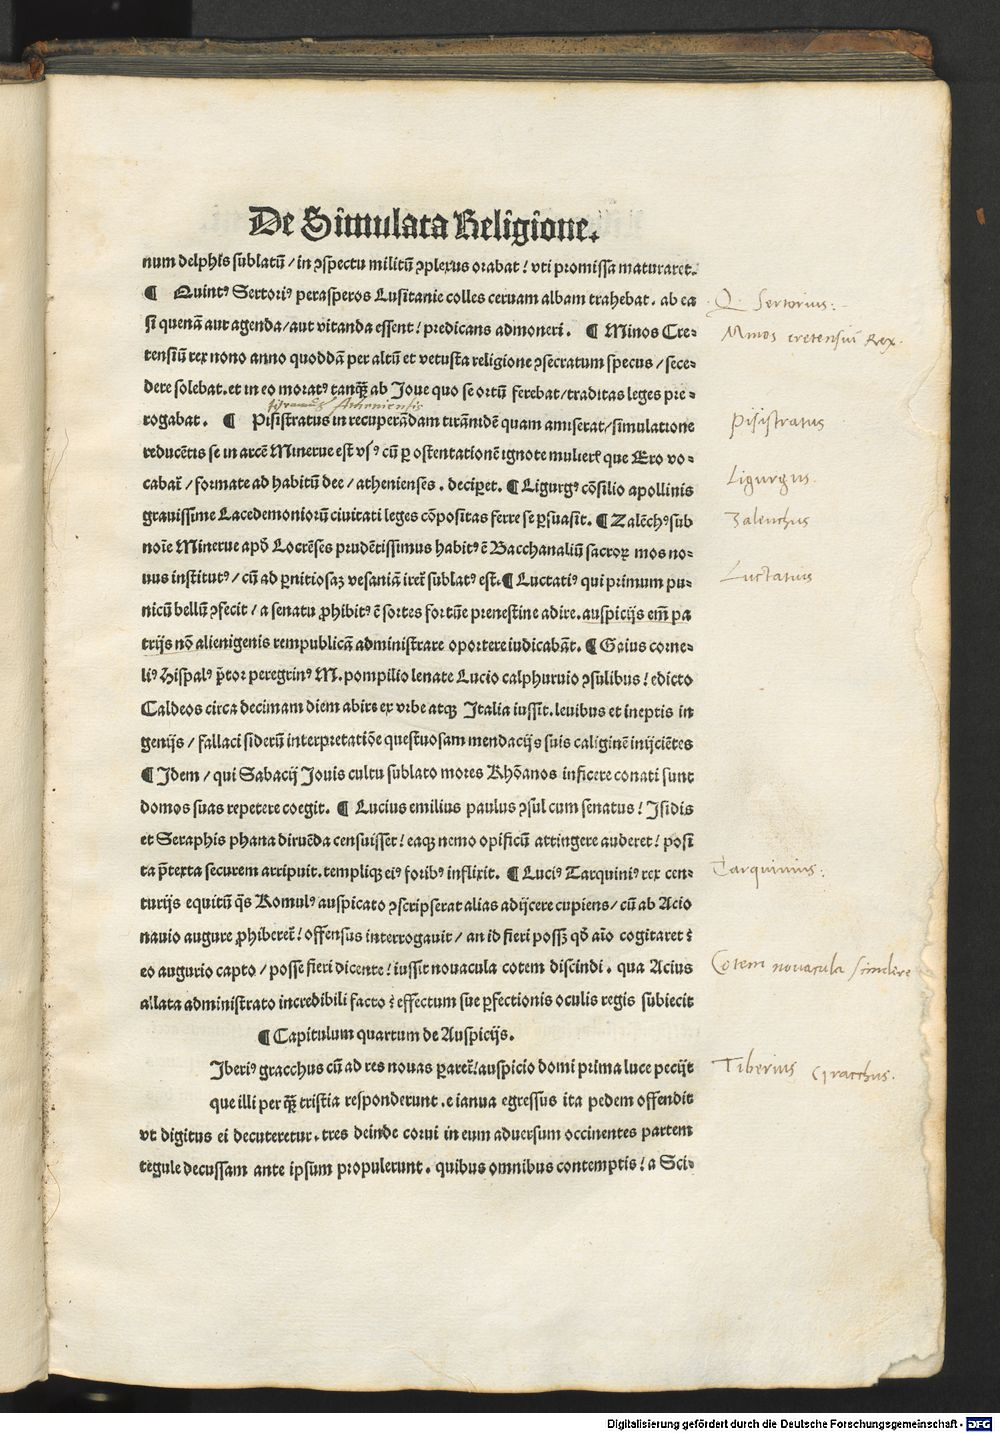 De Simulata Religione.
num delphis sublatū / in ɔspectu militū ɔplexus orabat! vti promissa maturaret.
¶ Quintꝰ Sertoriꝰ perasperos Lusitanie colles ceruam albam trahebat. ab ea
Q. Sertorius:
si quenā aut agenda / aut vitanda essent! predicans admoneri. ¶ Minos Cre-
Minos cretensiū Rex.
tensiū rex nono anno quoddā per altū et vetusta religione ɔsecratum specus / sece-
dere solebat. et in eo moratꝰ tanqꝫ ab Joue quo se ortū ferebat / traditas leges pre-
Atheniensis
rogabat. ¶ Pisistratus in recuperādam tirānidē quam amiserat / simulatione
Pisistratus
reducētis se in arcē Minerue est vsꝰ cū ꝑ ostentationē ignote mulierꝭ que Ero vo-
cabat̄ / formate ad habitū dee / athenienses. deciꝑet. ¶ Ligurgꝰ cōsilio apollinis
Ligurgus.
grauissime Lacedemoniorū ciuitati leges cōpositas ferre se ꝑsuasit. ¶ Zalēchꝰ sub
Zaleuchus
noīe Minerue apđ Locrēses prudētissimus habitꝰ ē Bacchanaliū sacroꝝ mos no-
uus institutꝰ / cū ad ꝑnitiosaꝫ vesaniā iret̄ sublatꝰ est. ¶ Luctatiꝰ qui primum pu-
Luctatius
nicū bellū ɔfecit / a senatu ꝓhibitꝰ ē sortes fortūe prenestine adire. auspicijs em̄ pa
trijs nō alienigenis rempublicā administrare oportere iudicabāt. ¶ Gaius corne-
liꝰ Hispalꝰ p̄tor peregrinꝰ M. pompilio lenate Lucio calphuruio ɔsulibus! edicto
Caldeos circa decimam diem abire ex vrbe atqꝫ Italia iussit. leuibus et ineptis in
genijs / fallaci siderū interpretatiōe questuosam mendacijs suis caliginē inijciētes
¶ Jdem / qui Sabacij Jouis cultu sublato mores Rhōanos inficere conati sunt
domos suas repetere coegit. ¶ Lucius emilius paulus ɔsul cum senatus! Jsidis
et Seraphis phana diruēda censuisset! eaqꝫ nemo opificū attingere auderet! posi
ta p̄texta securem arripuit. templiqꝫ eiꝰ foribꝰ inflixit. ¶ Luciꝰ Tarquiniꝰ rex cen-
Tarquinius:
turijs equitū q̄s Romulꝰ auspicato ɔscripserat alias adijcere cupiens / cū ab Acio
nauio augure ꝓhiberet̄! offensus interrogauit / an id fieri possꝫ qđ aīo cogitaret:
eo augurio capto / posse fieri dicente! iussit nouacula cotem discindi. qua Acius
Cotem nouacula scindere
allata administrato incredibili facto: effectum sue ꝑfectionis oculis regis subiecit
¶ Capitulum quartum de Auspicijs.
Jberiꝰ gracchus cū ad res nouas ꝑaret̄! auspicio domi prima luce pecijt
Tiberius Gracchus.
que illi per qꝫ tristia responderunt. e ianua egressus ita pedem offendit
vt digitus ei decuteretur. tres deinde corui in eum aduersum occinentes partem
tegule decussam ante ipsum propulerunt. quibus omnibus contemptis! a Sci-
Digitalisierung gefördert durch die Deutsche Forschungsgemeinschaft - DFG